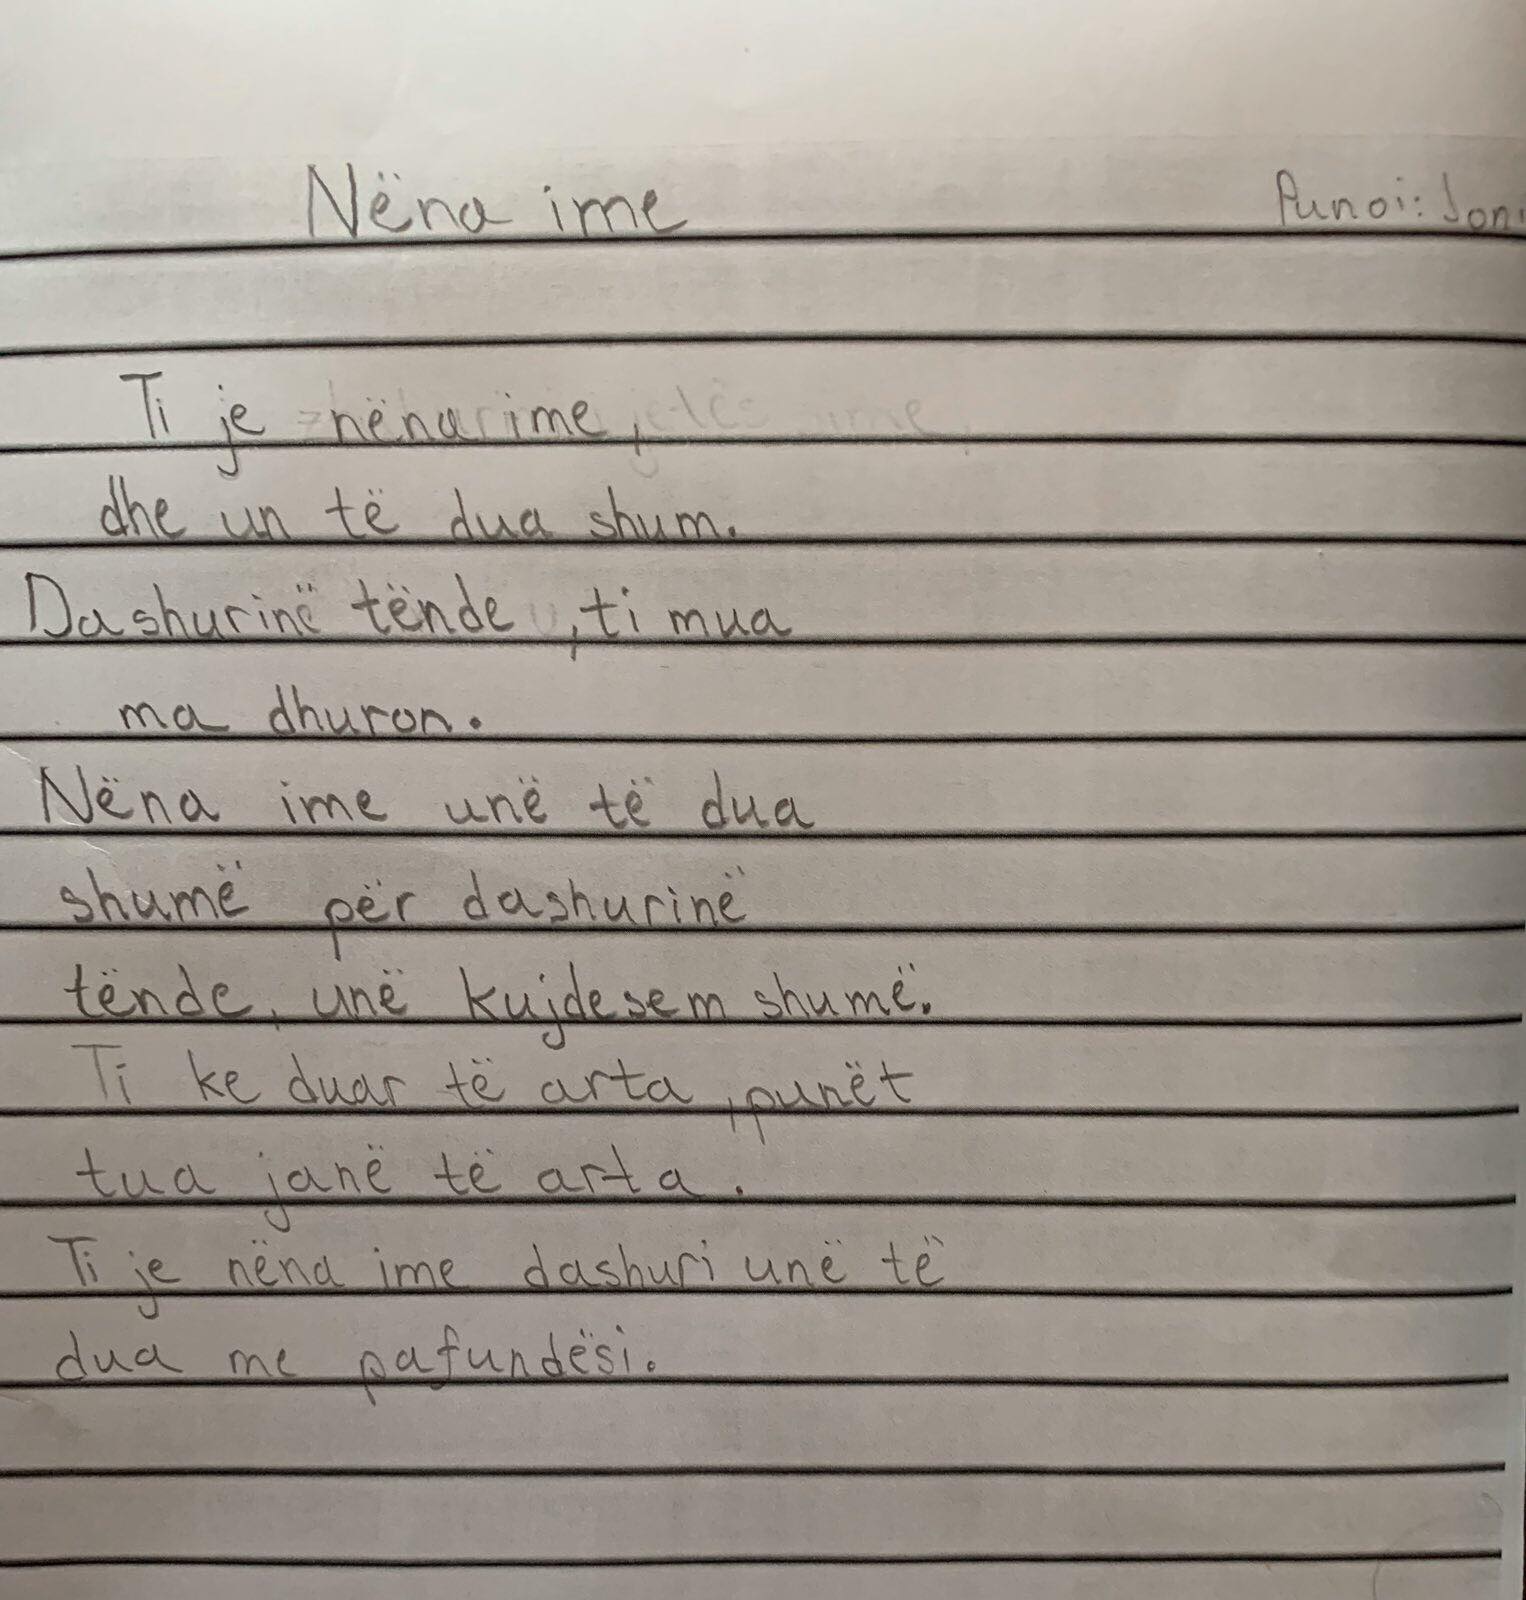 Nëna ime
Punoi: Joni
Ti je nëna ime,
dhe un të dua shum.
Dashurinë tënde, ti mua
ma dhuron.
Nëna ime unë të dua
shumë për dashurinë
tënde, unë kujdesem shumë.
Ti ke duar të arta, punët
tua janë të arta.
Ti je nëna ime dashuri unë të
dua me pafundësi.